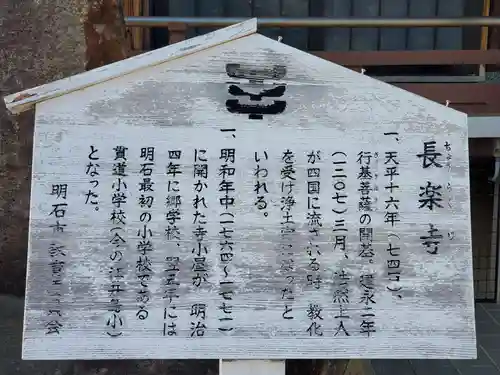 長楽寺
ちょうらくじ
一、天平十六年(七四四)、
行基菩薩の開基。建永二年
(一二〇七)三月、法然上人
が四国に流される時、教化
を受け浄土宗になったと
いわれる。
一、明和年中(一七六四〜一七七一)
に開かれた寺小屋が、明治
四年に郷学校、翌五年には
明石最初の小学校である
貫道小学校(今の江井島小)
となった。
明石市教育委員会